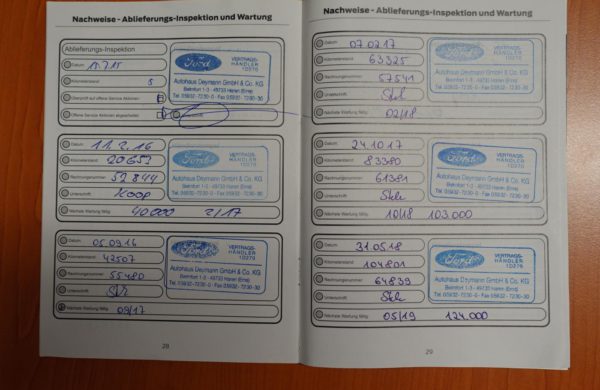 Nachweise - Ablieferungs-Inspektion und Wartung
Ablieferungs-Inspektion
Datum
Kilometerstand 5
Überprüft auf offene Service Aktionen
Offene Service Aktionen abgearbeitet
Ford VERTRAGS-
HÄNDLER
10276
Autohaus Deymann GmbH & Co. KG
Beimfort 1-3 · 49733 Haren (Ems)
Tel. 05932 - 7230-0 · Fax 05932 - 7230-30
Datum 11.2.16
Kilometerstand 20653
Rechnungsnummer 52844
Unterschrift Koop
Nächste Wartung fällig 40000 2/17
Ford VERTRAGS-
HÄNDLER
10276
Autohaus Deymann GmbH & Co. KG
Beimfort 1-3 · 49733 Haren (Ems)
Tel. 05932 - 7230-0 · Fax 05932 - 7230-30
Datum 05.09.16
Kilometerstand 42507
Rechnungsnummer 55480
Unterschrift
Nächste Wartung fällig 09/17
Ford VERTRAGS-
HÄNDLER
10276
Autohaus Deymann GmbH & Co. KG
Beimfort 1-3 · 49733 Haren (Ems)
Tel. 05932 - 7230-0 · Fax 05932 - 7230-30
28
Nachweise - Ablieferungs-Inspektion und Wartung
Datum 07.02.17
Kilometerstand 63325
Rechnungsnummer 57541
Unterschrift
Nächste Wartung fällig 02/18
Ford VERTRAGS-
HÄNDLER
10276
Autohaus Deymann GmbH & Co. KG
Beimfort 1-3 · 49733 Haren (Ems)
Tel. 05932 - 7230-0 · Fax 05932 - 7230-30
Datum 24.10.17
Kilometerstand 83380
Rechnungsnummer 61381
Unterschrift
Nächste Wartung fällig 10/18 103.000
Ford VERTRAGS-
HÄNDLER
10276
Autohaus Deymann GmbH & Co. KG
Beimfort 1-3 · 49733 Haren (Ems)
Tel. 05932 - 7230-0 · Fax 05932 - 7230-30
Datum 31.05.18
Kilometerstand 104801
Rechnungsnummer 64839
Unterschrift
Nächste Wartung fällig 05/19 124.000
Ford VERTRAGS-
HÄNDLER
10276
Autohaus Deymann GmbH & Co. KG
Beimfort 1-3 · 49733 Haren (Ems)
Tel. 05932 - 7230-0 · Fax 05932 - 7230-30
29